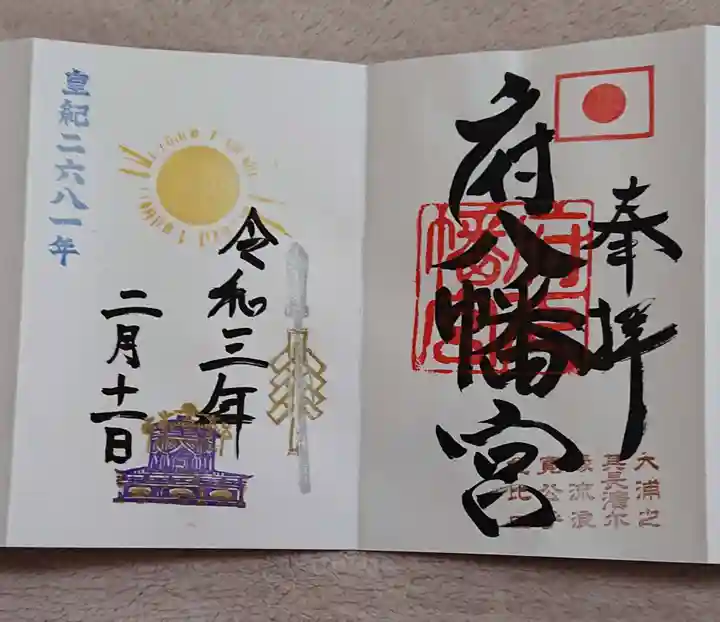 奉拝
府八幡宮
府八
幡宮
大浦之
其長濱尓
流浪
寛公
比
令和三年
二月十一日
皇紀二六八一年